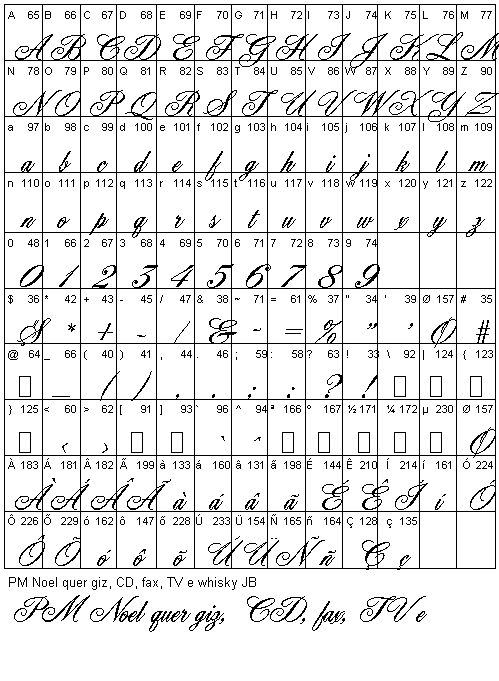 A 65 B 66 C 67 D 68 E 69 F 70 G 71 H 72 I 73 J 74 K 75 L 76 M 77
A B C D E F G H I J K L M
N 78 O 79 P 80 Q 81 R 82 S 83 T 84 U 85 V 86 W 87 X 88 Y 89 Z 90
N O P Q R S T U V W X Y Z
a 97 b 98 c 99 d 100 e 101 f 102 g 103 h 104 i 105 j 106 k 107 l 108 m 109
a b c d e f g h i j k l m
n 110 o 111 p 112 q 113 r 114 s 115 t 116 u 117 v 118 w 119 x 120 y 121 z 122
n o p q r s t u v w x y z
0 48 1 66 2 67 3 68 4 69 5 70 6 71 7 72 8 73 9 74
0 1 2 3 4 5 6 7 8 9
$ 36 * 42 + 43 - 45 / 47 & 38 ~ 71 = 61 % 37 " 34 ' 39 Ø 157 # 35
$ * + - / & ~ = % " ' Ø #
@ 64 _ 66 ( 40 ) 41 , 44 . 46 ; 59 : 58 ? 63 ! 33 \ 92 | 124 { 123
_ ( ) , . ; : ? !
} 125 < 60 > 62 [ 91 ] 93 ` 96 ^ 94 ª 166 º 167 ½ 171 ¼ 172 µ 230 Ø 157
‹ › ` ^ Ø
À 183 Á 181 Â 182 Ã 199 à 133 á 160 â 131 ã 198 É 144 Ê 210 Í 214 í 161 Ó 224
À Á Â Ã à á â ã É Ê Í í Ó
Ô 226 Õ 229 ó 162 ô 147 õ 228 Ú 233 Ü 154 Ñ 165 ñ 164 Ç 128 ç 135
Ô Õ ó ô õ Ú Ü Ñ ñ Ç ç
PM Noel quer giz, CD, fax, TV e whisky JB
PM Noel quer giz, CD, fax, TV e